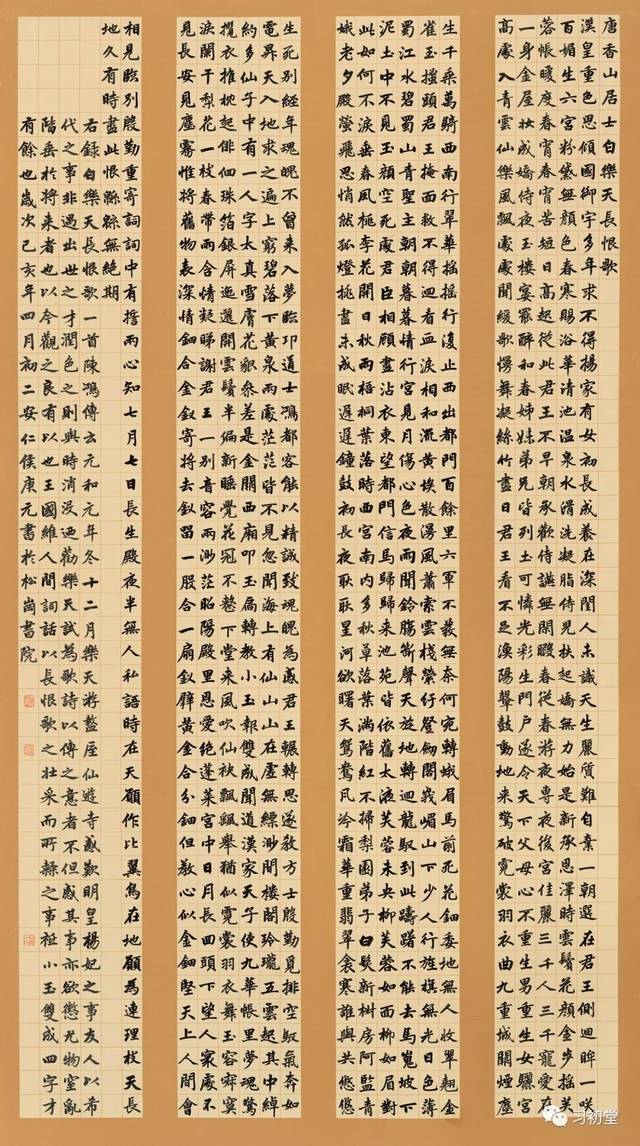 唐香山居士白樂天長恨歌
漢皇重色思傾國御宇多年求不得楊家有女初長成養在深閨人未識天生麗質難自棄一朝選在君王側迴眸一笑
百媚生六宮粉黛無顏色春寒賜浴華清池溫泉水滑洗凝脂侍兒扶起嬌無力始是新承恩澤時雲鬢花顏金步搖芙
蓉帳暖度春宵春宵苦短日高起從此君王不早朝承歡侍讌無閒暇春從春遊夜專夜後宮佳麗三千人三千寵愛在
一身金屋妝成嬌侍夜玉樓宴罷醉和春姊妹弟兄皆列土可憐光彩生門戶遂令天下父母心不重生男重生女驪宮
高處入青雲仙樂風飄處處聞緩歌慢舞凝絲竹盡日君王看不足漁陽鼙鼓動地來驚破霓裳羽衣曲九重城闕煙塵
生千乘萬騎西南行翠華搖搖行復止西出都門百餘里六軍不發無奈何宛轉蛾眉馬前死花鈿委地無人收翠翹金
雀玉搔頭君王掩面救不得迴看血淚相和流黃埃散漫風蕭索雲棧縈紆登劍閣峨嵋山下少人行旌旗無光日色薄
蜀江水碧蜀山青聖主朝朝暮暮情行宮見月傷心色夜雨聞鈴腸斷聲天旋地轉迴龍馭到此躊躇不能去馬嵬坡下
泥土中不見玉顏空死處君臣相顧盡沾衣東望都門信馬歸歸來池苑皆依舊太液芙蓉未央柳芙蓉如面柳如眉對
此如何不淚垂春風桃李花開日秋雨梧桐葉落時西宮南內多秋草落葉滿階紅不掃梨園弟子白髮新椒房阿監青
娥老夕殿螢飛思悄然孤燈挑盡未成眠遲遲鐘鼓初長夜耿耿星河欲曙天鴛鴦瓦冷霜華重翡翠衾寒誰與共悠悠
生死別經年魂魄不曾來入夢臨邛道士鴻都客能以精誠致魂魄為感君王輾轉思遂教方士殷勤覓排空馭氣奔如
電昇天入地求之遍上窮碧落下黃泉兩處茫茫皆不見忽聞海上有仙山山在虛無縹渺間樓閣玲瓏五雲起其中綽
約多仙子中有一人字太真雪膚花貌參差是金闕西廂叩玉扃轉教小玉報雙成聞道漢家天子使九華帳裡夢魂驚
攬衣推枕起徘徊珠箔銀屏迤邐開雲鬢半偏新睡覺花冠不整下堂來風吹仙袂飄飄舉猶似霓裳羽衣舞玉容寂寞
淚闌干梨花一枝春帶雨含情凝睇謝君王一別音容兩渺茫昭陽殿裏恩愛絕蓬萊宮中日月長回頭下望人寰處不
見長安見塵霧惟將舊物表深情鈿合金釵寄將去釵留一股合一扇釵擘黃金合分鈿但教心似金鈿堅天上人間會
相見臨別殷勤重寄詞詞中有誓兩心知七月七日長生殿夜半無人私語時在天願作比翼鳥在地願為連理枝天長
地久有時盡此恨綿綿無絕期
右錄白樂天長恨歌一首陳鴻傳云元和元年冬十二月樂天將盩厔仙遊寺感歎明皇楊妃之事友人以希
代之事非遇出世之才潤色之則與時消沒迺勸樂天試為歌詩以傳之意者不但感其事亦欲懲尤物窒亂
階垂於將來者也以今觀之良有以也王國維人間詞話以長恨歌之壯采而所隸之事祗小玉雙成四字才
有餘也歲次己亥年四月初二安仁侯庚元書於松崗書院
习初堂